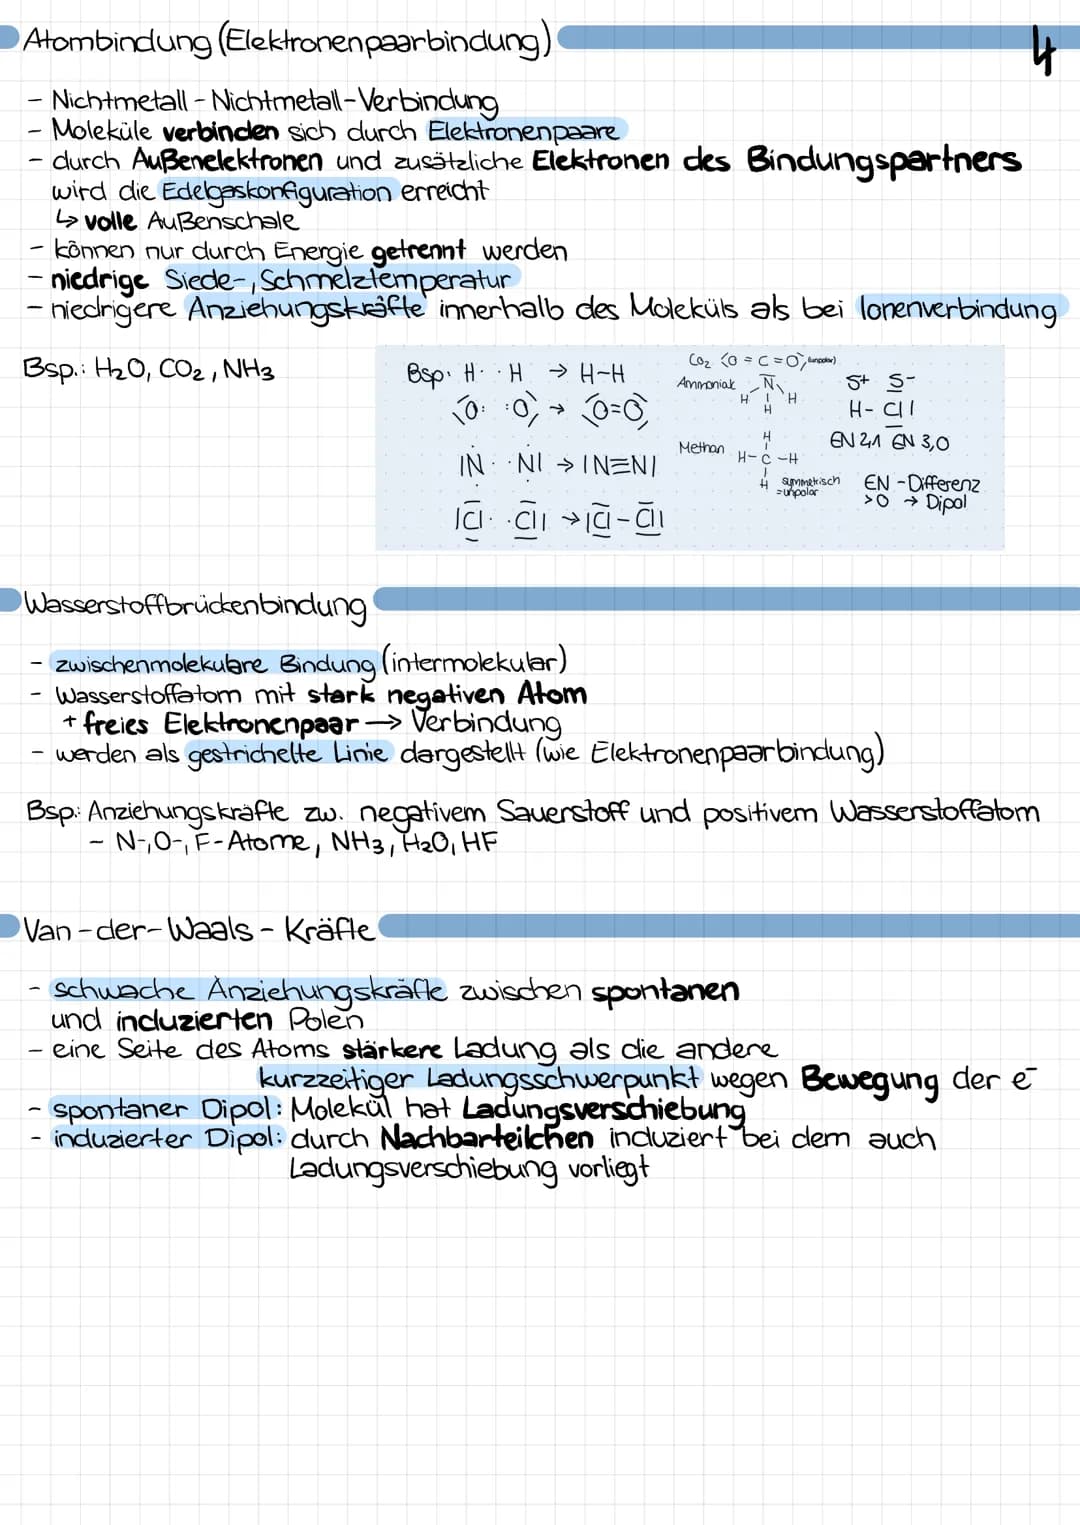 Atombindung (Elektronenpaarbindung)
4
- Nichtmetall - Nichtmetall - Verbindung
- Moleküle verbinden sich durch Elektronenpaare
- durch Außenelektronen und zusätzliche Elektronen des Bindungspartners
wird die Edelgaskonfiguration erreicht
↳ volle Außenschale
- können nur durch Energie getrennt werden
- niedrige Siede-, Schmelztemperatur
- niedrigere Anziehungskräfte innerhalb des Moleküls als bei Ionenverbindung
Bsp.: H₂O, CO₂, NH₃
Bsp. H· ·H → H-H
⟨O: :O⟩ → ⟨O=O⟩
|N· ·N| → |N≡N|
|Cl· ·Cl| → |Cl-Cl|
CO₂ ⟨O=C=O⟩ (unpolar)
Ammoniak N
H H
H
Methan H
H-C-H
H symmetrisch
= unpolar
δ+ δ-
H-Cl|
EN 2,1 EN 3,0
EN-Differenz
>0 → Dipol
Wasserstoffbrückenbindung
- zwischenmolekulare Bindung (intermolekular)
- Wasserstoffatom mit stark negativen Atom
+ freies Elektronenpaar → Verbindung
- werden als gestrichelte Linie dargestellt (wie Elektronenpaarbindung)
Bsp.: Anziehungskräfte zw. negativem Sauerstoff und positivem Wasserstoffatom
- N-, O-, F-Atome, NH₃, H₂O, HF
Van-der-Waals-Kräfte
- schwache Anziehungskräfte zwischen spontanen
und induzierten Polen
- eine Seite des Atoms stärkere Ladung als die andere
kurzzeitiger Ladungsschwerpunkt wegen Bewegung der e⁻
- spontaner Dipol: Molekül hat Ladungsverschiebung
- induzierter Dipol: durch Nachbarteilchen induziert bei dem auch
Ladungsverschiebung vorliegt